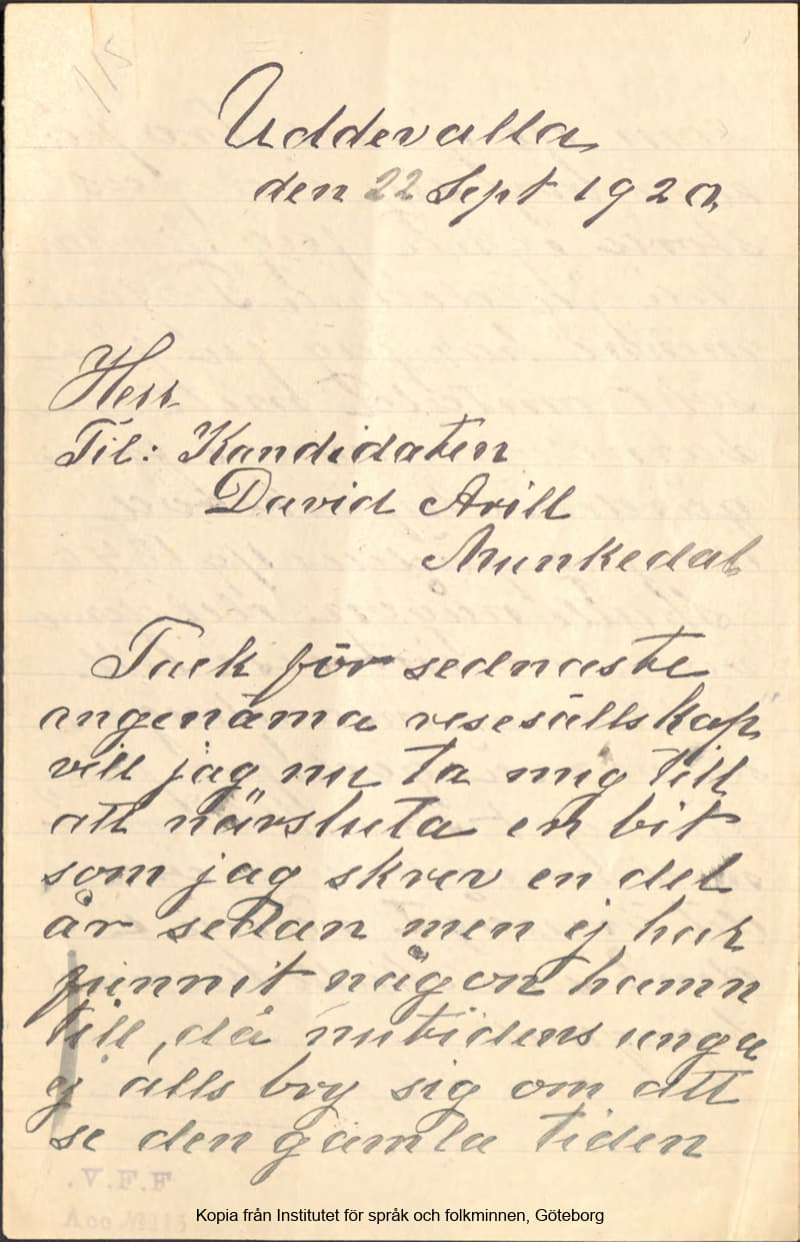 115
Uddevalla,
den 22 Sept 1920,
Herr
Til: Kandidaten
David Arill
Munkedal
Tack för sednaste
angenäma resesällskap,
vill jag nu ta mig till
att närsluta en bit
som jag skrev en del
år sedan men ej har
funnit någon hamn
till, då nutidens unga
ej alls bry sig om att
se den gamla tiden
.V.F.F
Acc. № 115
Kopia från Institutet för språk och folkminnen, Göteborg